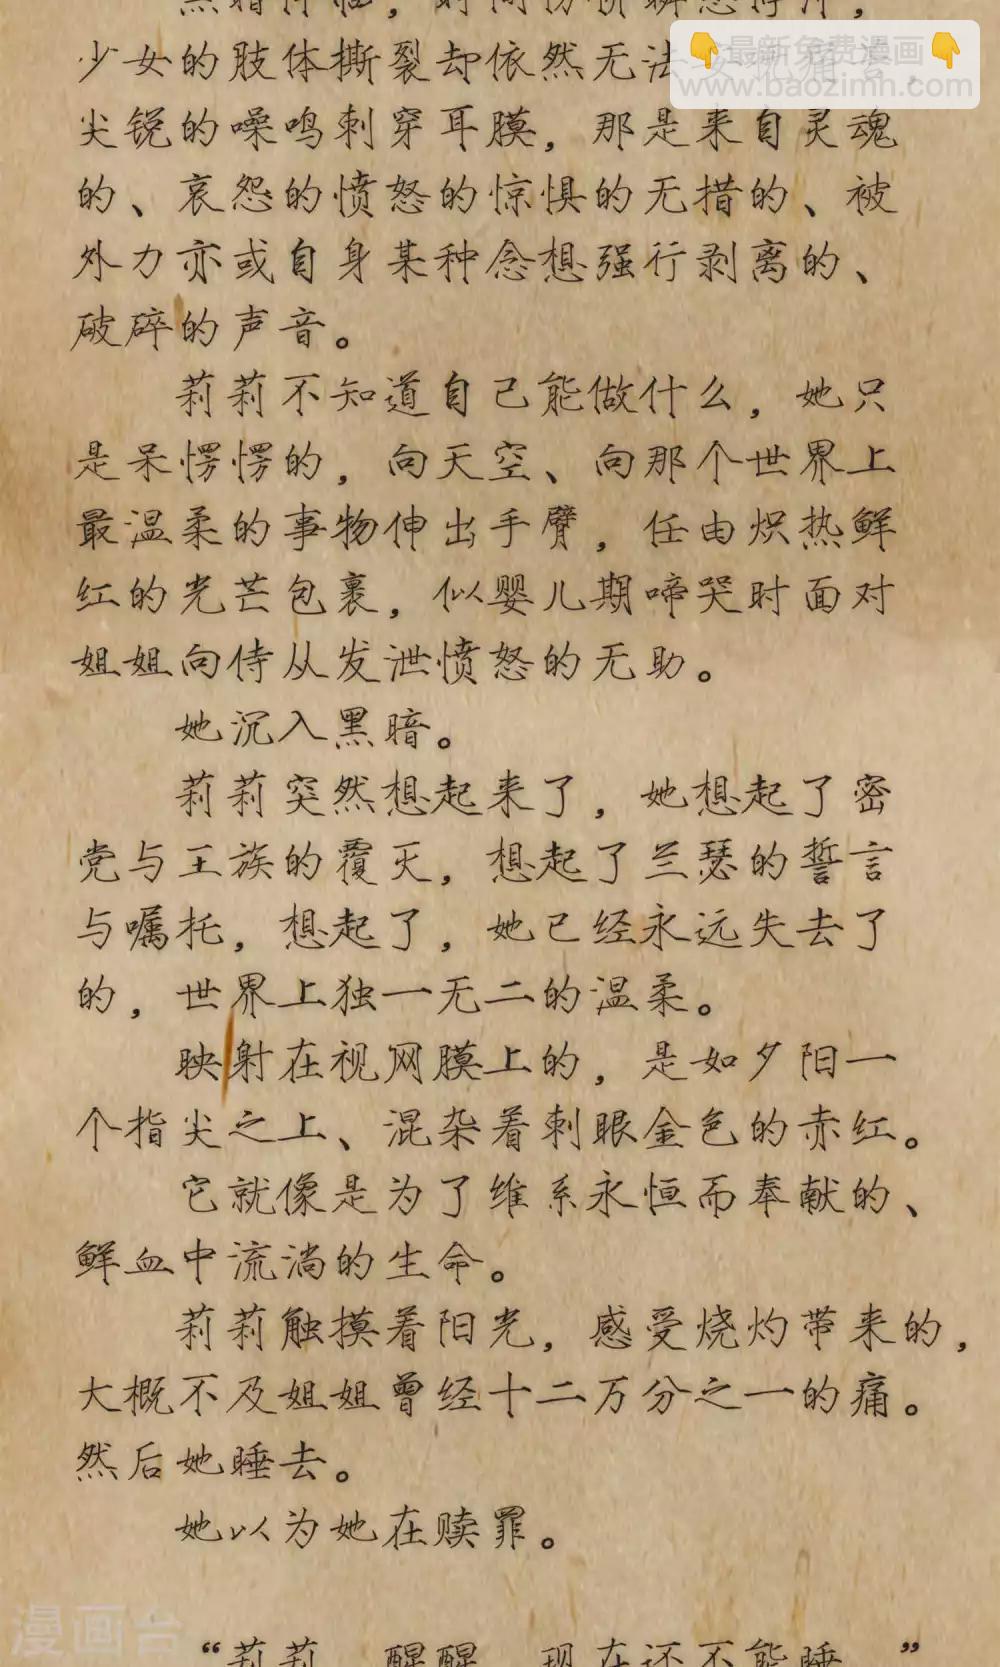 👇最新免费漫画👇
www.baozimh.com
少女的肢体撕裂却依然无法
尖锐的噪鸣刺穿耳膜，那是来自灵魂
的、哀怨的愤怒的惊惧的无措的、被
外力亦或自身某种念想强行剥离的、
破碎的声音。
莉莉不知道自己能做什么，她只
是呆愣愣的，向天空、向那个世界上
最温柔的事物伸出手臂，任由炽热鲜
红的光芒包裹，似婴儿期啼哭时面对
姐姐向侍从发泄愤怒的无助。
她沉入黑暗。
莉莉突然想起来了，她想起了密
党与王族的覆灭，想起了兰瑟的誓言
与嘱托，想起了，她已经永远失去了
的，世界上独一无二的温柔。
映射在视网膜上的，是如夕阳一
个指尖之上、混杂着刺眼金色的赤红。
它就像是为了维系永恒而奉献的、
鲜血中流淌的生命。
莉莉触摸着阳光，感受烧灼带来的，
大概不及姐姐曾经十二万分之一的痛。
然后她睡去。
她以为她在赎罪。
“莉莉，醒醒，现在还不能睡。”
漫画台